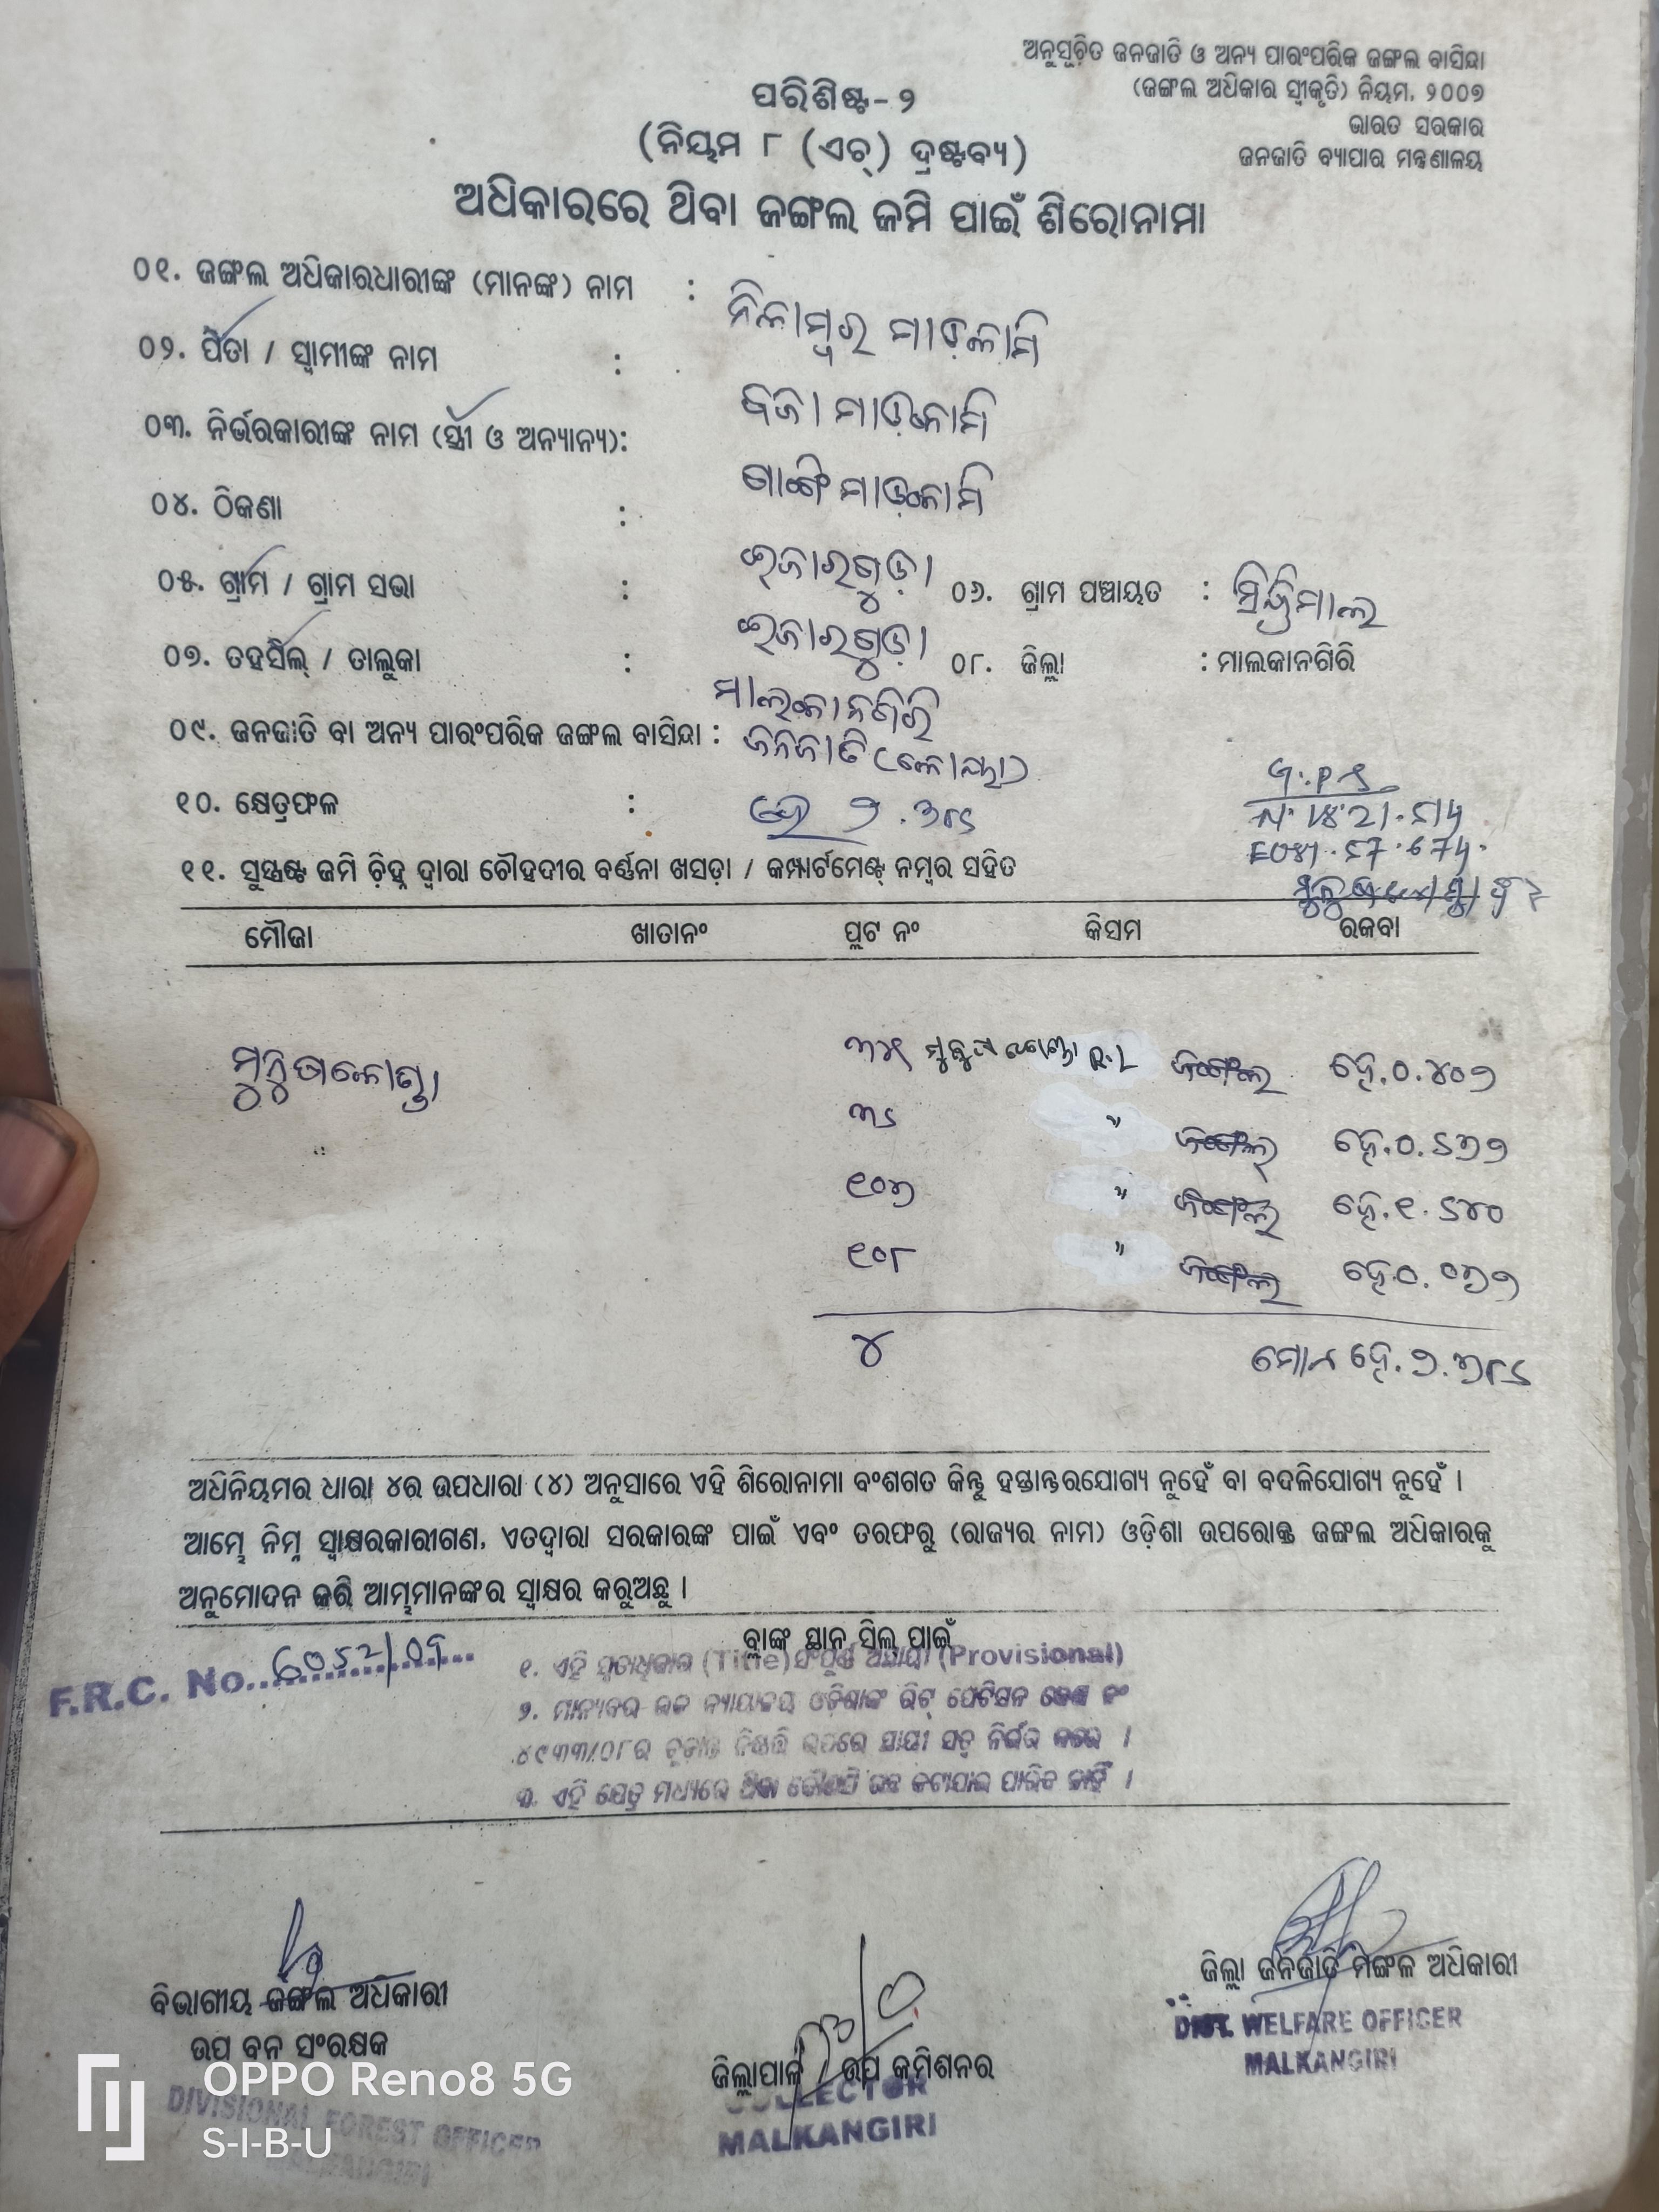 ଅନୁସୂଚିତ ଜନଜାତି ଓ ଅନ୍ୟ ପାରଂପରିକ ଜଙ୍ଗଲ ବାସିନ୍ଦା
(ଜଙ୍ଗଲ ଅଧିକାର ସ୍ୱୀକୃତି) ନିୟମ, ୨୦୦୭
ଭାରତ ସରକାର
ଜନଜାତି ବ୍ୟାପାର ମନ୍ତ୍ରଣାଳୟ
ପରିଶିଷ୍ଟ-୨
(ନିୟମ ୮ (ଏଚ୍) ଦ୍ରଷ୍ଟବ୍ୟ)
ଅଧିକାରରେ ଥିବା ଜଙ୍ଗଲ ଜମି ପାଇଁ ଶିରୋନାମା
୦୧. ଜଙ୍ଗଲ ଅଧିକାରଧାରୀଙ୍କ (ମାନଙ୍କ) ନାମ : ନିଳାମ୍ବର ମାଡ଼କାମି
୦୨. ପିତା / ସ୍ୱାମୀଙ୍କ ନାମ : ମାଡ଼କାମି
୦୩. ନିର୍ଭରକାରୀଙ୍କ ନାମ (ସ୍ତ୍ରୀ ଓ ଅନ୍ୟାନ୍ୟ): ମାଡ଼କାମି
୦୪. ଠିକଣା :
୦୫. ଗ୍ରାମ / ଗ୍ରାମ ସଭା : ୦୬. ଗ୍ରାମ ପଞ୍ଚାୟତ :
୦୭. ତହସିଲ୍ / ତାଲୁକା : ମାଲକାନଗିରି ୦୮. ଜିଲ୍ଲା : ମାଲକାନଗିରି
୦୯. ଜନଜାତି ବା ଅନ୍ୟ ପାରଂପରିକ ଜଙ୍ଗଲ ବାସିନ୍ଦା : ଜନଜାତି (କୋୟା)
G.P.S
୧୦. କ୍ଷେତ୍ରଫଳ : ହେ ୨.୩୮୬
୧୧. ସୁସ୍ପଷ୍ଟ ଜମି ଚିହ୍ନ ଦ୍ୱାରା ଚୌହଦୀର ବର୍ଣ୍ଣନା ଖସଡ଼ା / କମ୍ପାର୍ଟମେଣ୍ଟ୍ ନମ୍ବର ସହିତ
ମୌଜା ଖାତାନଂ ପ୍ଲଟ ନଂ କିସମ ରକବା
R.L ଜଂଗଲ ହେ.୦.୪୦୨
୩୬ " ଜଂଗଲ ହେ.୦.୬୩୨
୧୦୩ " ଜଂଗଲ ହେ.୧.୬୪୦
୧୦୮ " ଜଂଗଲ ହେ.୦.୦୩୨
୪ ମୋଟ ହେ.୨.୩୮୬
ଅଧିନିୟମର ଧାରା ୪ର ଉପଧାରା (୪) ଅନୁସାରେ ଏହି ଶିରୋନାମା ବଂଶଗତ କିନ୍ତୁ ହସ୍ତାନ୍ତରଯୋଗ୍ୟ ନୁହେଁ ବା ବଦଳିଯୋଗ୍ୟ ନୁହେଁ ।
ଆମ୍ଭେ ନିମ୍ନ ସ୍ୱାକ୍ଷରକାରୀଗଣ, ଏତଦ୍ୱାରା ସରକାରଙ୍କ ପାଇଁ ଏବଂ ତରଫରୁ (ରାଜ୍ୟର ନାମ) ଓଡ଼ିଶା ଉପରୋକ୍ତ ଜଙ୍ଗଲ ଅଧିକାରକୁ
ଅନୁମୋଦନ କରି ଆମ୍ଭମାନଙ୍କର ସ୍ୱାକ୍ଷର କରୁଅଛୁ ।
ବ୍ଲାଙ୍କ ସ୍ଥାନ ସିଲ୍ ପାଇଁ
F.R.C. No. 6052/09
୧. ଏହି (Title) ସଂପୂର୍ଣ୍ଣ ଅସ୍ଥାୟୀ (Provisional)
୨. ମାନ୍ୟବର ଉଚ୍ଚ ନ୍ୟାୟାଳୟ ଓଡ଼ିଶାଙ୍କ ରିଟ୍ ପେଟିସନ କେଶ ନଂ
୪୯୩୩/୦୮ର ଚୂଡ଼ାନ୍ତ ନିଷ୍ପତ୍ତି ଉପରେ ସ୍ଥାୟୀ ସତ୍ୱ ନିର୍ଭର କରେ ।
୩. ଏହି କ୍ଷେତ୍ର ମଧ୍ୟରେ ଥିବା କୌଣସି ଗଛ କଟାଯାଇ ପାରିବ ନାହିଁ ।
ବିଭାଗୀୟ ଜଙ୍ଗଲ ଅଧିକାରୀ
ଉପ ବନ ସଂରକ୍ଷକ
DIVISIONAL FOREST OFFICER
MALKANGIRI
ଜିଲ୍ଲାପାଳ / ଉପ କମିଶନର
COLLECTOR
MALKANGIRI
ଜିଲ୍ଲା ଜନଜାତି ମଙ୍ଗଳ ଅଧିକାରୀ
DIST. WELFARE OFFICER
MALKANGIRI
OPPO Reno8 5G
S-I-B-U